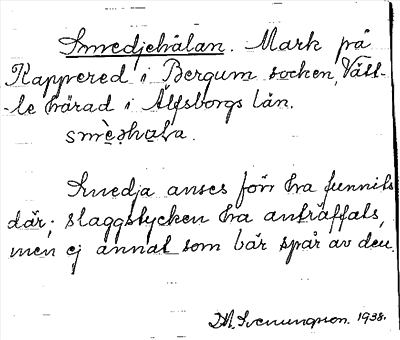 Smedjehålan. Mark på
Kappered i Bergum socken, Vätt-
-le härad i Älfsborgs län.
Smedja anses förr ha funnits
där; slaggstycken ha anträffats,
men ej annat som bär spår av den.
1938.